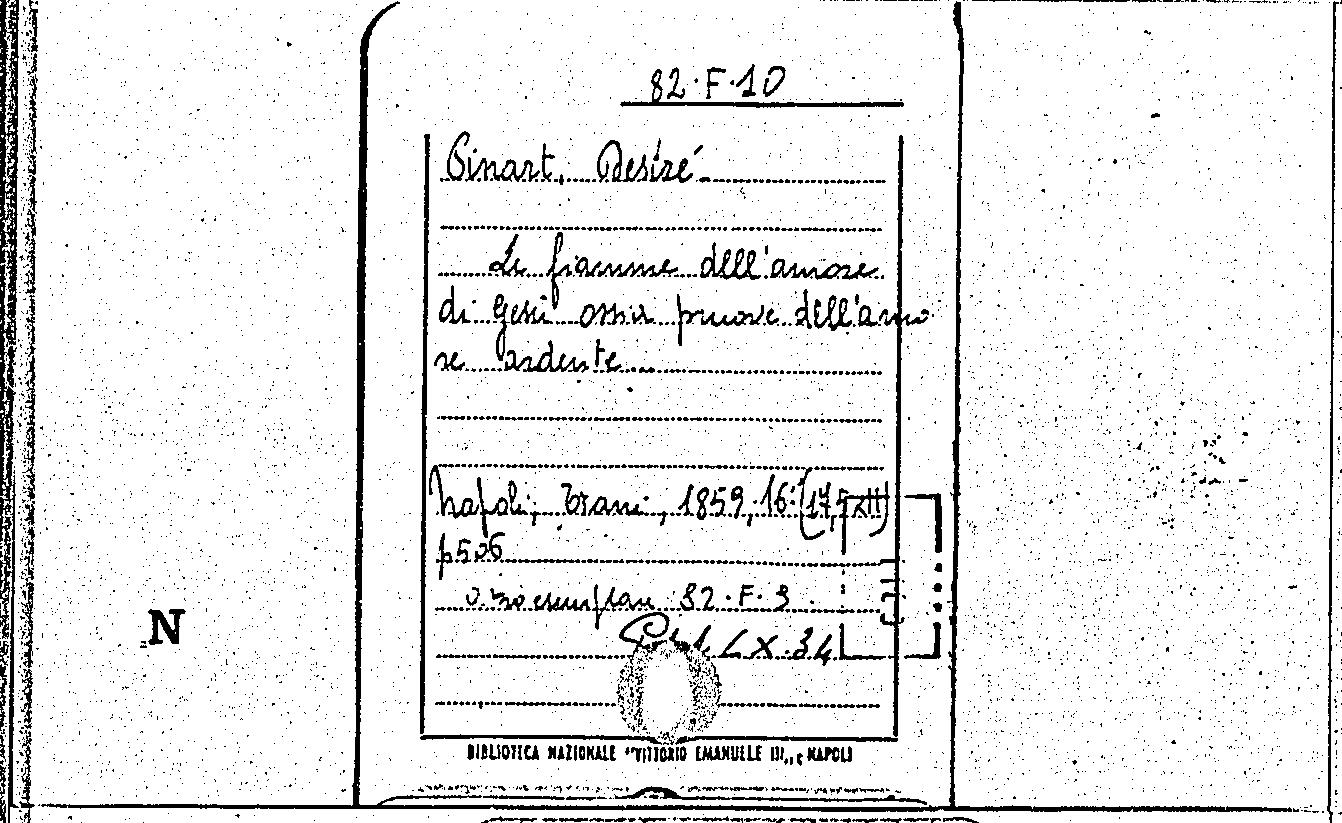 82·F·10
Pinart, Desiré
Le fiamme dell'amore
di Gesù ossia pruove dell'amo
re ardente...
Napoli, Trani, 1859, 16° (17,5x11)
p506
82·F·9
LX.34
N
BIBLIOTECA NAZIONALE "VITTORIO EMANUELE III„ - NAPOLI